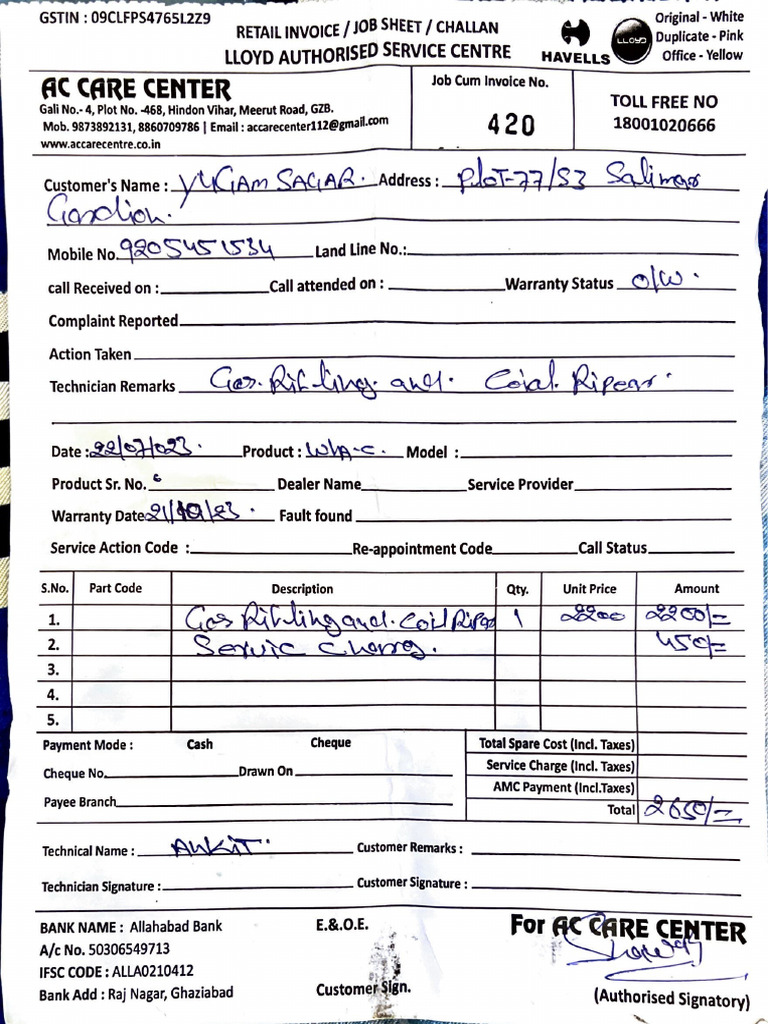 GSTIN : 09CLFPS4765L2Z9
RETAIL INVOICE / JOB SHEET / CHALLAN
LLOYD AUTHORISED SERVICE CENTRE
HAVELLS
LLOYD
Original - White
Duplicate - Pink
Office - Yellow
AC CARE CENTER
Gali No.- 4, Plot No. -468, Hindon Vihar, Meerut Road, GZB.
Mob. 9873892131, 8860709786 | Email : accarecenter112@gmail.com
www.accarecentre.co.in
Job Cum Invoice No.
420
TOLL FREE NO
18001020666
Customer's Name : YUGAM SAGAR. Address : Plot-77/S3 Salimar
Gardion.
Mobile No. 9205451534 Land Line No.:
call Received on : Call attended on : Warranty Status O/W.
Complaint Reported
Action Taken
Technician Remarks Gas. Rifling. and. Coial. Ripear.
Date : 22/07/023. Product : W/A-C. Model :
Product Sr. No. Dealer Name Service Provider
Warranty Date 21/10/23. Fault found
Service Action Code : Re-appointment Code Call Status
S.No. Part Code Description Qty. Unit Price Amount
1. Gas Rifling and. Coil Ripear 1 2200 2200/=
2. Servic Charg. 450/=
3.
4.
5.
Payment Mode : Cash Cheque
Cheque No. Drawn On
Payee Branch
Total Spare Cost (Incl. Taxes)
Service Charge (Incl. Taxes)
AMC Payment (Incl.Taxes)
Total 2650/=
Technical Name : ANKIT. Customer Remarks :
Technician Signature : Customer Signature :
BANK NAME : Allahabad Bank
A/c No. 50306549713
IFSC CODE : ALLA0210412
Bank Add : Raj Nagar, Ghaziabad
E.&.O.E.
Customer Sign.
For AC CARE CENTER
(Authorised Signatory)